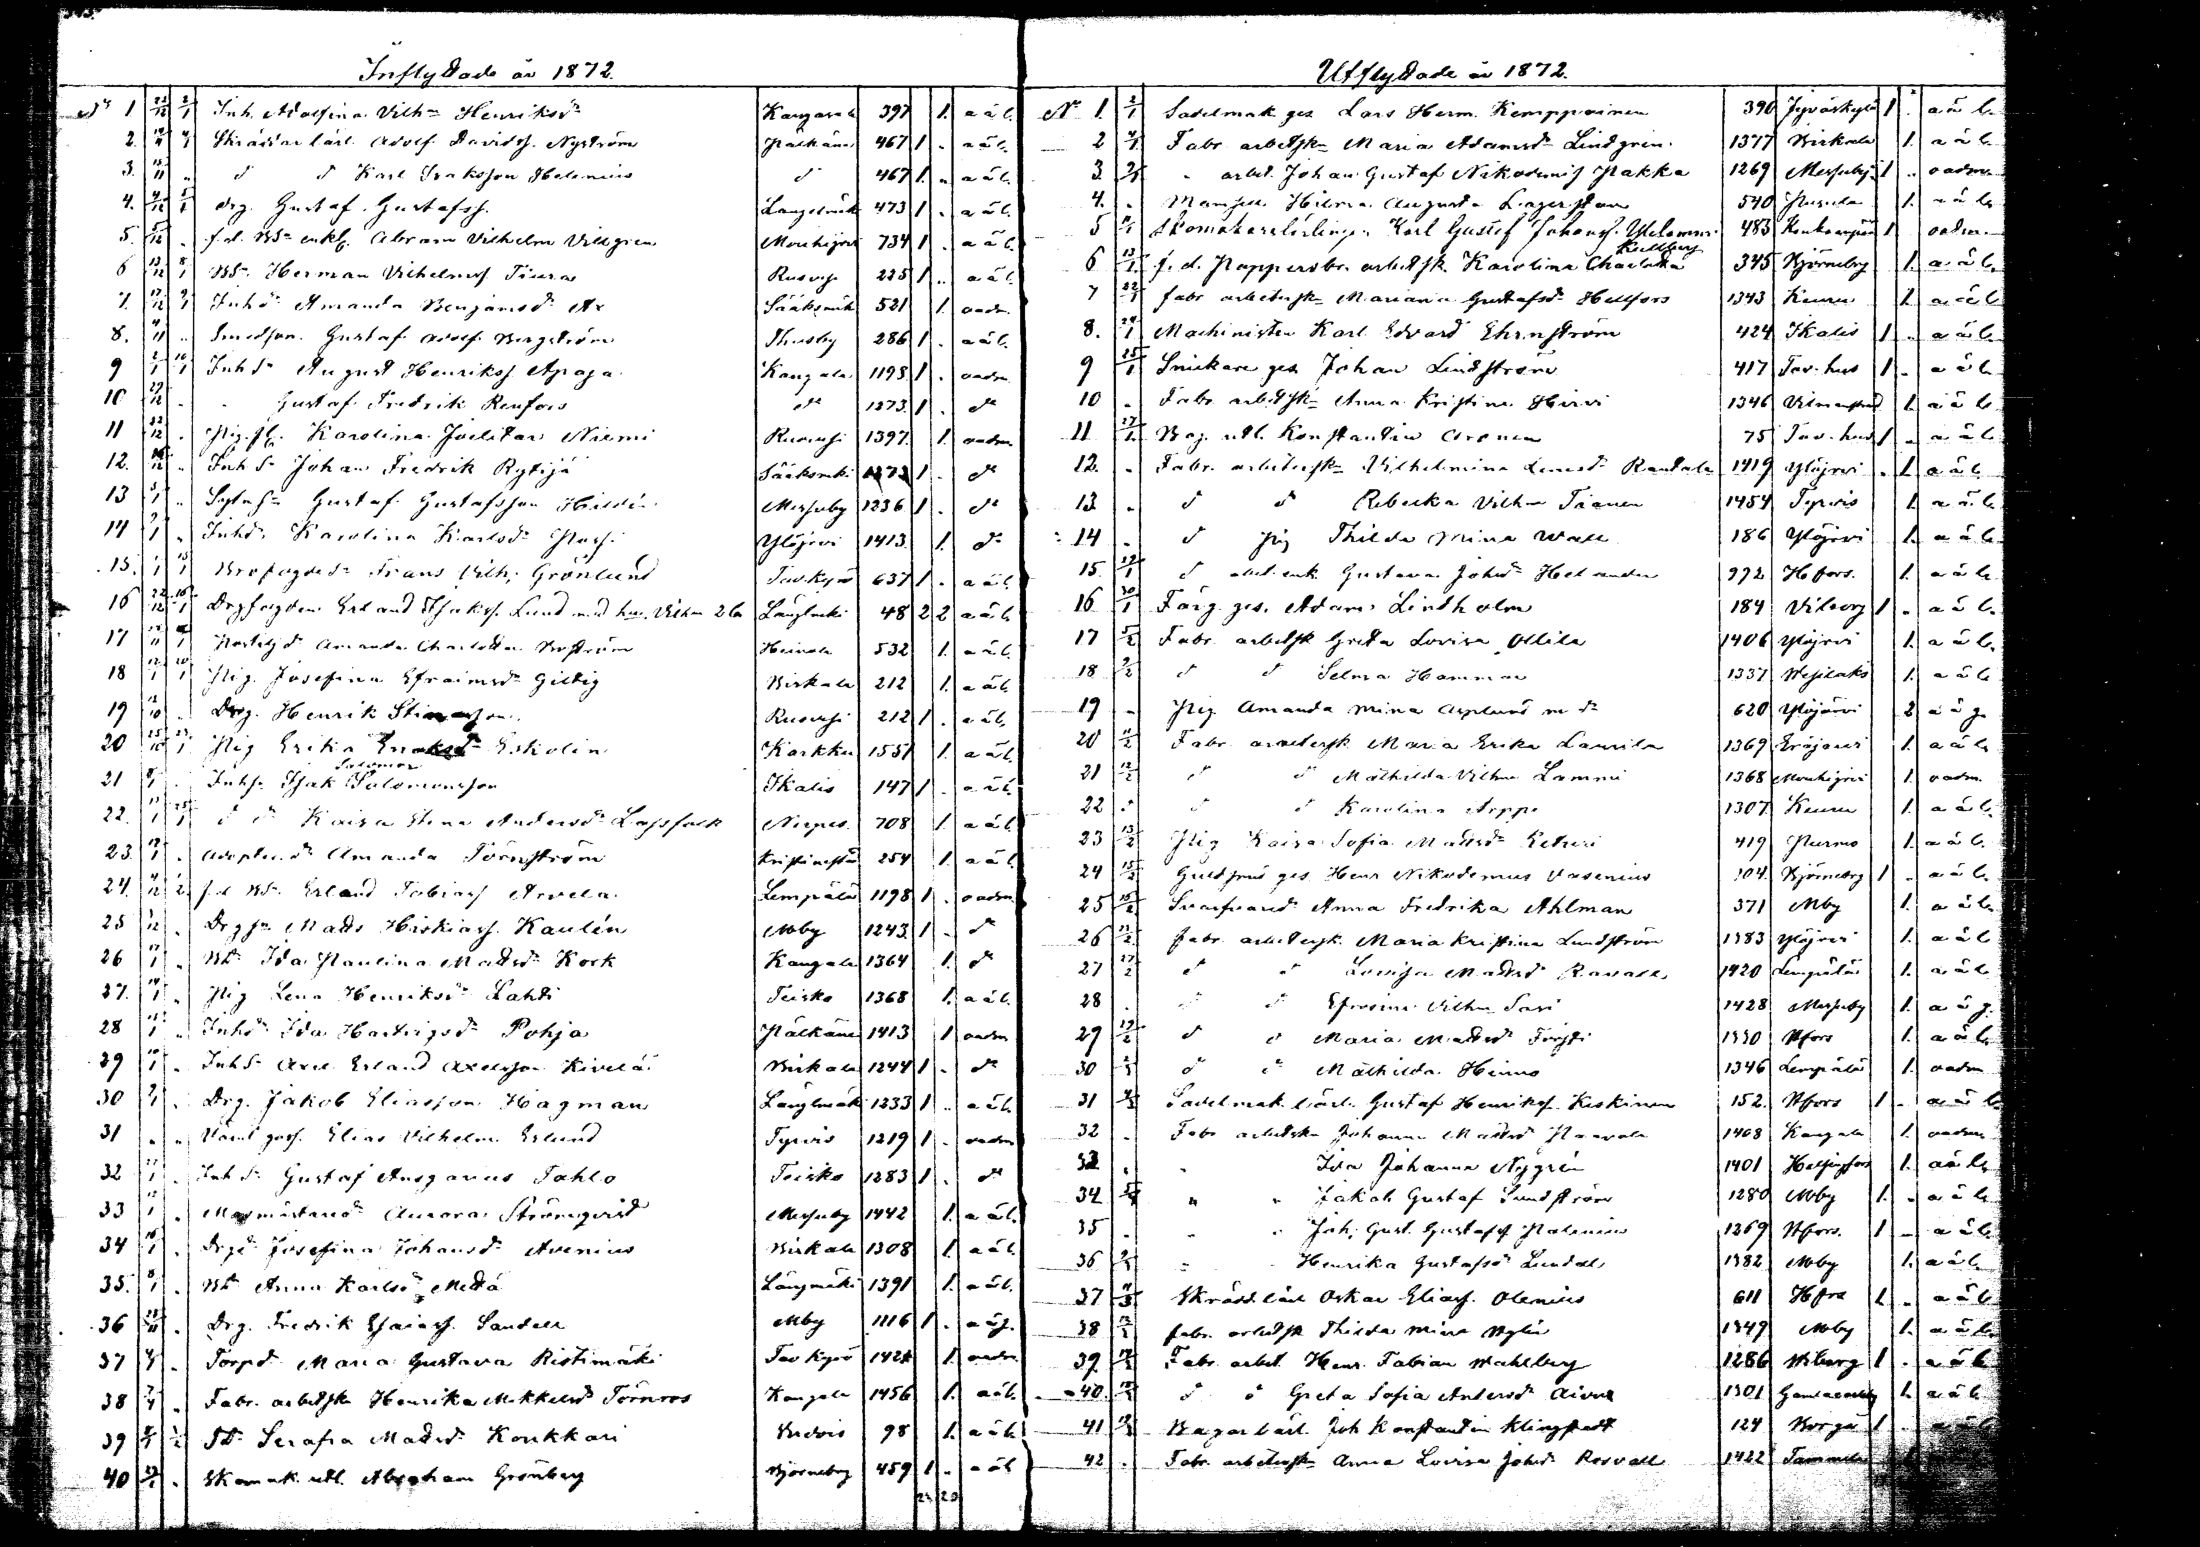 Inflyttade år 1872.
No 1 Inh. Adolfina Vilh:a Henriksd:r Kangasala 397 1. a ä b.
2. Skräddarlärl. Adolf Davidss. Nyström Pälkäne 467 1 - a ä b.
3. d d Karl Isaksson Helenius d 467 1. - a ä b.
4. Drg. Gustaf Gustafss. Längelmäki 473 1 - a ä b.
5. f.d. enkl. Abram Vilhelm Villgren Mouhijärvi 734 1 - a ä b.
6 Herman Vilhelmss Tiura Ruovesi 225 1 a ä b.
7. Inhd:r Amanda Benjamsd:r Ax Sääksmäki 521 1. oadm.
8. Smedson. Gustaf Adolf Bergström Thusby 286 1 - a ä b.
9 Inhs:n August Henrikss Apaja Kangala 1193 1 - oadm.
10 Gustaf Fredrik Renfors d:o 1273 1 - d:o
11 Pig. Karolina Niemi Ruovesi 1397 1. oadm
12. Inhs:n Johan Fredrik Rytijä Sääksmäki 1273 1 - d:o
13 Gustaf Gustafsson Hildén Messuby 1236 1 - d:o
14 Inhd:r Karolina Karlsd:r Ylöjärvi 1413 1. d:o
15. Frans Vilh. Grönlund Tav.kyrö 637 1 - a ä b.
16 Drgfogden Erland Isakss. Lund med hu. Vilh:a 2 b Längelmäki 48 2 2 a ä b.
17 Amanda Charlotta Boström Heinola 532 1. a ä b.
18 Pig. Josefina Efraimsd:r Gillig Birkala 212 1. a ä b.
19 Drg. Henrik Ruovesi 212 1 - a ä b.
20 Pig Erika Eskolin Karkku 1551 1. a ä b.
21 Inhs. Isak Salomonsson Salomon Ikalis 147 1 - a ä b.
22. d d Kaisa Stina Andersd:r Lassfolk Nerpes 708 1. a ä b.
23. Adoptivd:r Amanda Törnström Kristinestad 254 1. a ä b.
24. f.d. Erland Tobiass Arvela Lempälä 1198 1 - oadm
25 Drgs:n Matts Hiskiass. Kaulén Mby 1243 1 - d:o
26 Ida Paulina Mattsd:r Kock Kangala 1364 1. d:o
27. Pig Lena Henriksd:r Lahti Teisko 1368 1. a ä b.
28 Inhd:r Ida Hartvigsd:r Pohja Pälkäne 1413 1 oadm
29 Inhs:n Axel Erland Axelsson Kivelä Birkala 1244 1 - d:o
30 Drg. Jakob Eliasson Hagman Längelmäki 1233 1 - a ä b.
31 Elias Vilhelm Erlund Tyrvis 1219 1 - oadm
32 Inhs:n Gustaf Ansgarius Tahlo Teisko 1283 1 - d:o
33 Aurora Strömqvist Messuby 1442 1. a ä b.
34 Drgd:r Josefina Johansd:r Avenius Birkala 1308 1. a ä b.
35. Anna Karlsd:r Mattä Längmäki 1391 1. a ä b.
36 Drg. Fredrik Esaiass. Sandell Mby 1116 1. a ä g.
37 Torpd:r Maria Gustava Ristimäki Tavkyrö 1424 1. oadm
38 Fabr. arbetsk. Henrika Mikkelsd:r Törnros Kangala 1456 1. a ä b.
39 Serafia Mattsd:r Konkkari 98 1. a ä b.
40 Skomak. utl. Abraham Grönberg Björneborg 459 1 - a ä b.
Utflyttade år 1872.
No 1. Sadelmak ges Lars Herm. Kemppainen 390 Jyväskylä 1 a ä b.
2 Fabr. arbetsk:a Maria Adamsd:r Lindgren 1377 Birkala 1. a ä b.
3. " arbet. Johan Gustaf Nikodemiss Pakka 1269 Messuby 1 - oadm.
4. Mamsell Hilma Augusta Lagerstam 540 Pusula 1. a ä b.
5 Skomakarelärlinge Karl Gustaf Johanss. 483 1 oadm.
6 f. d. Pappersbr. arbetsk. Karolina Charlotta Kullberg 345 Björneborg 1. a ä b.
7 fabr arbetersk:a Mariana Gustafsd:r Hellfors 1343 Keuru 1. a ä b.
8. Machinisten Karl Edvard Ehrnström 424 Ikalis 1 - a ä b.
9 Snickare ges. Johan Lindström 417 Tav.hus 1 - a ä b.
10 Fabr. arbetsk:a Anna Kristina Hirvi 1346 Vilmanstrand 1. a ä b.
11 Bag. utl. Konstantin Aronen 75 Tav.hus 1 - a ä b.
12. Fabr. arbetersk:a Vilhelmina Rantala 1419 Ylöjrvi 1. a ä b.
13 d d Rebecka Vilh:a Tianen 1454 Tyrvis 1. a ä b.
14 d pig Thilda Mina Wall 186 Ylöjrvi 1. a ä b.
15. d arbt.enk. Gustava Johsd:r Helander 992 Hfors. 1. a ä b.
16 Färg. ges. Adam Lindholm 184 Viborg 1 - a ä b.
17 Fabr. arbetsk Greta Lovisa Ollila 1406 Ylöjrvi 1. a ä b.
18 d d Selma Hammar 1337 Vesilaks 1. a ä b.
19 Pig Amanda Mina Asplund m d:r 620 Ylöjärvi 2 a ä g.
20 Fabr. arbetersk Maria Erika Laurila 1369 Eräjärvi 1. a ä b.
21 d d Mathilda Vilh:a Lammi 1368 Mouhijrvi 1. oadm.
22 d d Karolina Arppe 1307 Keuru 1. a ä b.
23 Pig Kaisa Sofia Mattsd:r Ketturi 419 Nurmo 1. a ä b.
24 Guldsmd ges. Henr Nikodemus Vasenius 104. Björneborg 1 - a ä b.
25 Svarfvared:r Anna Fredrika Ahlman 371 Mby 1. a ä b.
26 fabr. arbetersk. Maria Kristina Lundström 1383 Ylöjrvi 1. a ä b.
27 d d Lovisa Mattsd:r Ravall 1420 Lempälä 1. a ä b.
28 d d Efrosine Vilh:a Sari 1428 Messuby 1. a ä g.
29 d d Maria Mattsd:r 1330 Hfors 1. a ä b.
30 d d Mathilda Heimo 1346 Lempälä 1. oadm
31 Sadelmak.lärl. Gustaf Henrikss. Keskinen 152. Hfors 1 - a ä b.
32 Fabr arbetska Johanna Mattsd:r Paavola 1408 Kangala 1. oadm.
33 " Ida Johanna Nygrén 1401 Helsingfors 1. a ä b.
34 " " Jakob Gustaf Sundström 1280 Mby 1. - a ä b.
35 " " Joh. Gust. Gustafss Palenius 1269 Hfors. 1 - a ä b.
36 " Henrika Gustafsd:r Lindell 1382 Mby 1. a ä b.
37 Skrädd.lärl Oskar Eliass. Olenius 611 Hfrs 1. - a ä b.
38 fabr. arbetsk Thilda Mina Nylén 1349 Mby 1. a ä b.
39 Fabr. arbet. Henr. Fabian Wahlberg 1286 Viborg 1 - a ä b.
40 d d Greta Sofia Andersd:r 1301 Gamlacarleby 1. a ä b.
41 Bagarlärl. Joh Konstantin Klingstedt 124 Borgå 1 - a ä b.
42 Fabr. arbetersk:a Anna Lovisa Johsd:r Rosvall 1422 Tammela